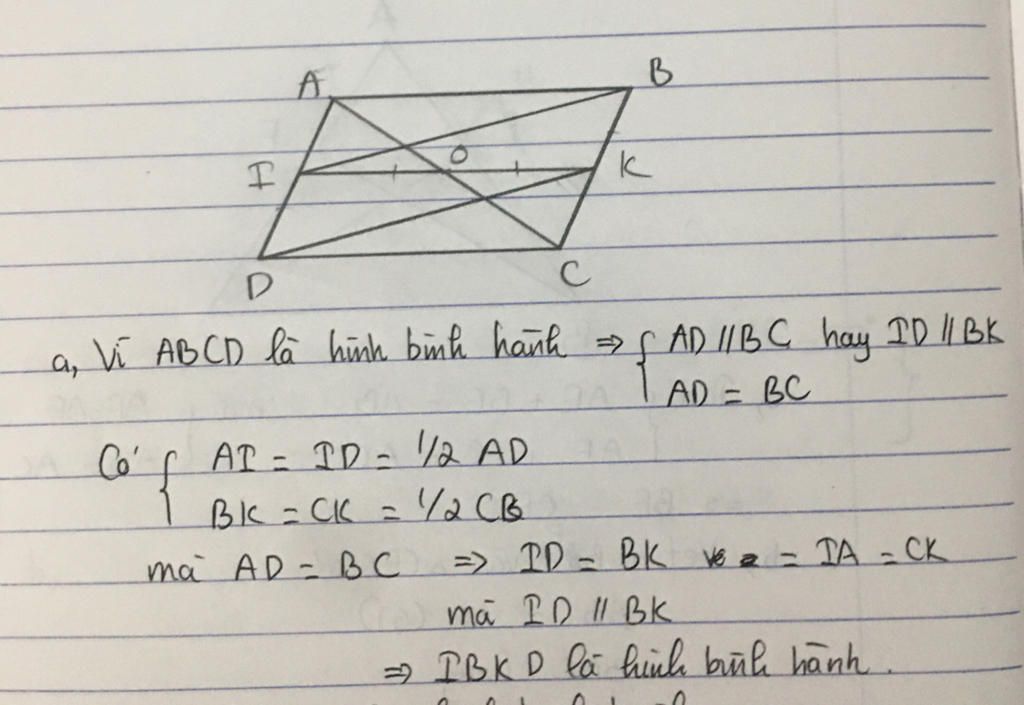 A B
I O K
D C
a, Vì ABCD là hình bình hành ⇒ { AD // BC hay ID // BK
AD = BC
Có { AI = ID = 1/2 AD
BK = CK = 1/2 CB
mà AD = BC ⇒ ID = BK = IA = CK
mà ID // BK
⇒ IBKD là hình bình hành.